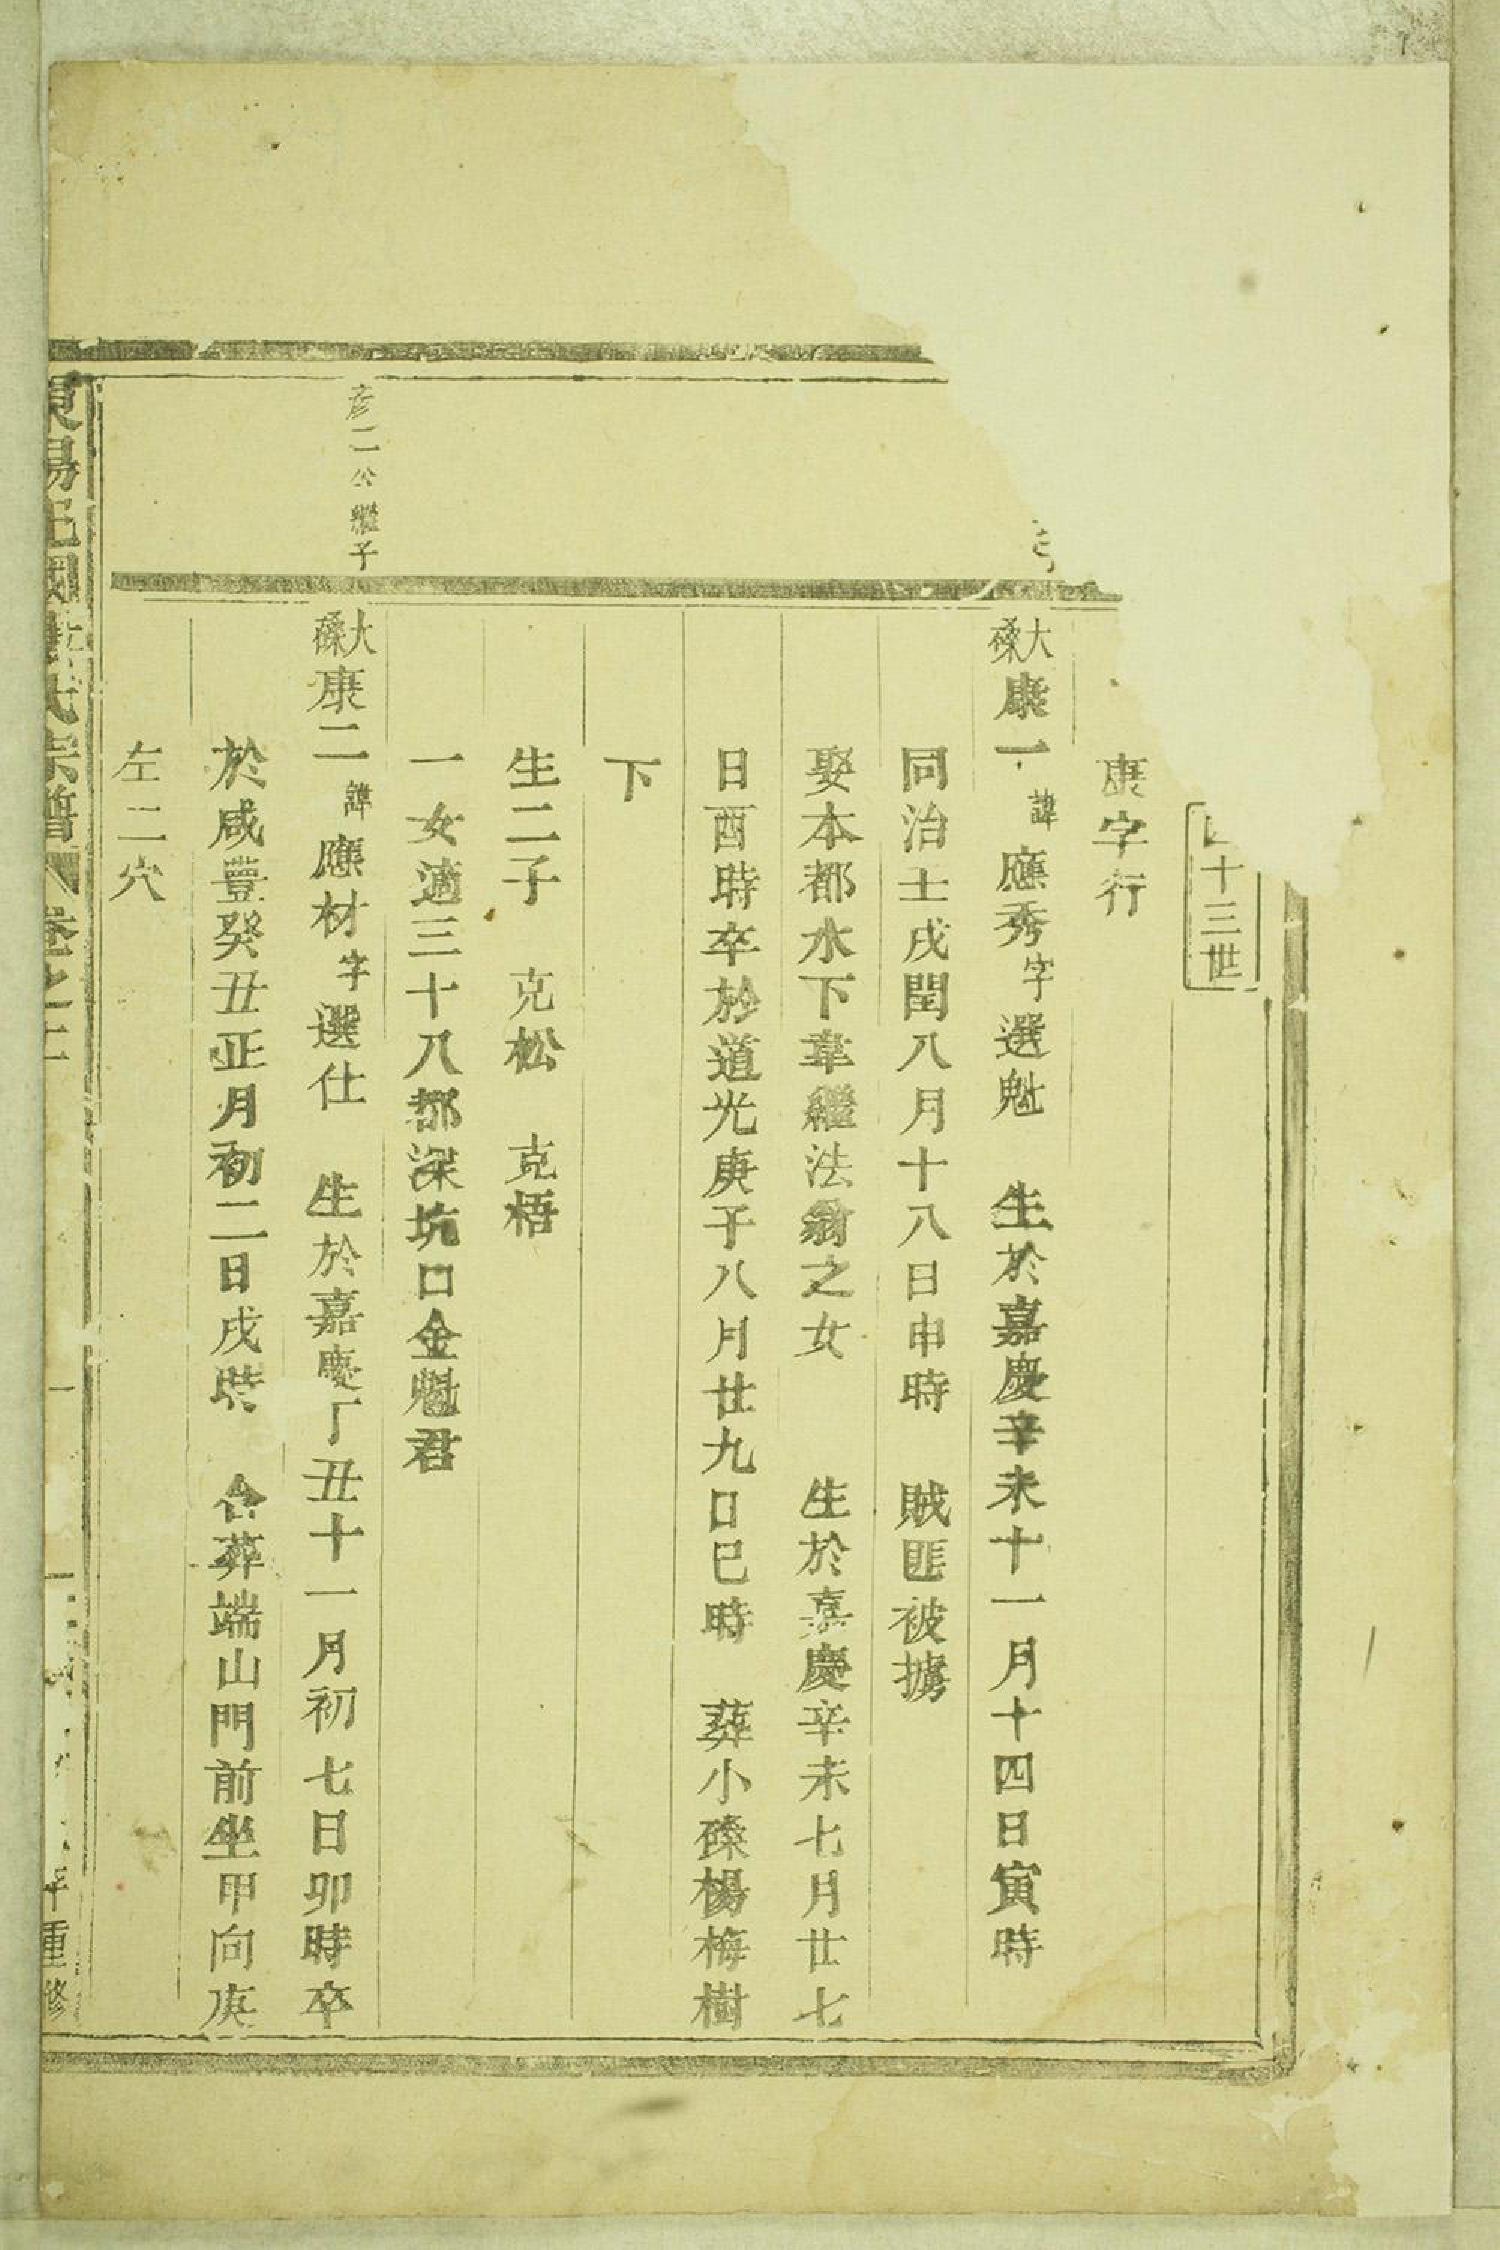 十三世
康字行
大磉康一諱應秀字選魁 生於嘉慶辛未十一月十四日寅時
同治壬戌閏八月十八日申時 賊匪被擄
娶本都水下韋繼法翁之女 生於嘉慶辛未七月廿七
日酉時卒於道光庚子八月廿九日巳時 葬小磉楊梅樹
下
生二子 克松 克梧
一女適三十八都深坑口金魁君
彦二公繼子
大磉康二諱應材字選仕 生於嘉慶丁丑十一月初七日卯時卒
於咸豐癸丑正月初二日戌時 合葬端山門前坐甲向庚
左二穴
氏宗譜 卷之二 重修